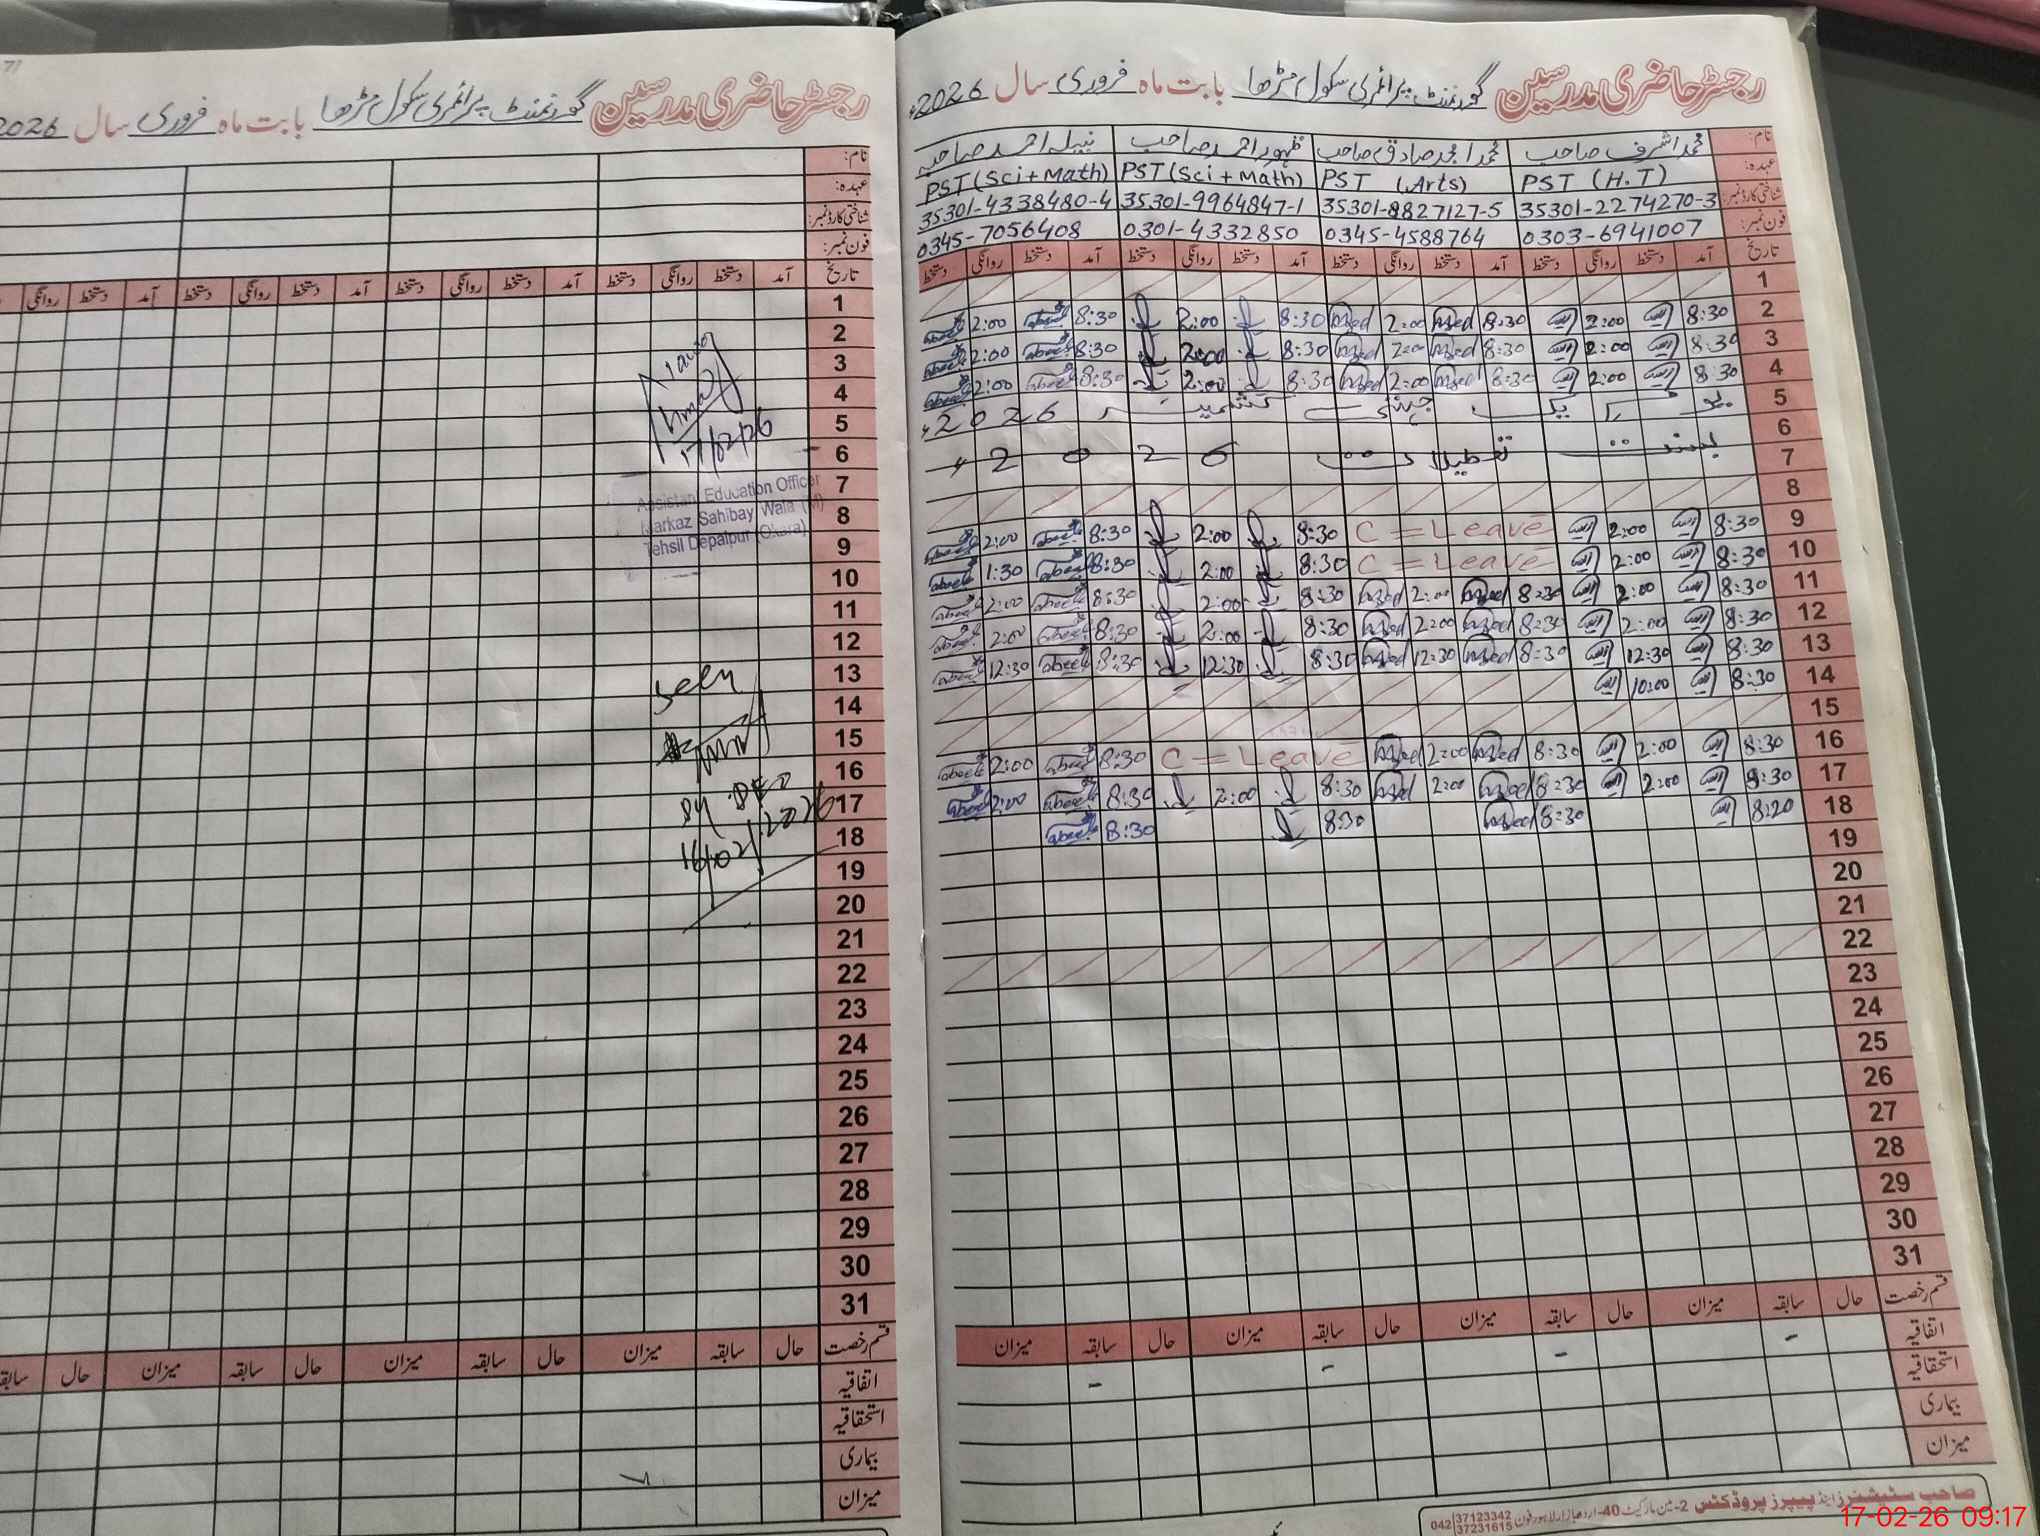 رجسٹر حاضری مدرسین گورنمنٹ پرائمری سکول مڑھا بابت ماہ فروری سال 2026
نام:
عہدہ:
شناختی کارڈ نمبر:
فون نمبر:
تاریخ آمد دستخط روانگی دستخط آمد دستخط روانگی دستخط آمد دستخط روانگی دستخط آمد دستخط روانگی
1
2
3
4
5
6
7
8
9
10
11
12
13
14
15
16
17
18
19
20
21
22
23
24
25
26
27
28
29
30
31
17/02/26
Assistant Education Officer
Markaz Sahibay Wala (M)
Tehsil Depalpur (Okara)
Seen
Dy. DEO
16/02/2026
قسم رخصت حال سابقہ میزان حال سابقہ میزان حال سابقہ میزان حال سابقہ
اتفاقیہ
استحقاقیہ
بیماری
میزان
رجسٹر حاضری مدرسین گورنمنٹ پرائمری سکول مڑھا بابت ماہ فروری سال 2026ء
نام: محمد اشرف صاحب محمد امجد صادق صاحب ظہور احمد صاحب نبیلہ احمد صاحبہ
عہدہ: PST (H.T) PST (Arts) PST (Sci + Math) PST (Sci + Math)
شناختی کارڈ نمبر: 35301-2274270-3 35301-8827127-5 35301-9964847-1 35301-4338480-4
فون نمبر: 0303-6941007 0345-4588764 0301-4332850 0345-7056408
تاریخ آمد دستخط روانگی دستخط آمد دستخط روانگی دستخط آمد دستخط روانگی دستخط آمد دستخط روانگی دستخط
1
2 8:30 2:00 8:30 2:00 8:30 2:00 8:30 2:00
3 8:30 2:00 8:30 2:00 8:30 2:00 8:30 2:00
4 8:30 2:00 8:30 2:00 8:30 2:00 8:30 2:00
5 یوم یکجہتی کشمیر 2026ء
6
7 بسنت تعطیلات 2026ء
8
9 8:30 2:00 C = Leave 8:30 2:00 8:30 2:00
10 8:30 2:00 C = Leave 8:30 2:00 8:30 1:30
11 8:30 2:00 8:30 2:00 8:30 2:00 8:30 2:00
12 8:30 2:00 8:30 2:00 8:30 2:00 8:30 2:00
13 8:30 12:30 8:30 12:30 8:30 12:30 8:30 12:30
14 8:30 10:00
15
16 8:30 2:00 8:30 2:00 C = Leave 8:30 2:00
17 8:30 2:00 8:30 2:00 8:30 2:00 8:30 2:00
18 8:20 8:30 8:30 8:30
19
20
21
22
23
24
25
26
27
28
29
30
31
قسم رخصت حال سابقہ میزان حال سابقہ میزان حال سابقہ میزان حال سابقہ میزان
اتفاقیہ - - - -
استحقاقیہ
بیماری
میزان
صاحب سٹیشنرز اینڈ پیپرز پروڈکٹس 2-مین مارکیٹ 40-اردو بازار لاہور فون 042 37123342 37231615
17-02-26 09:17